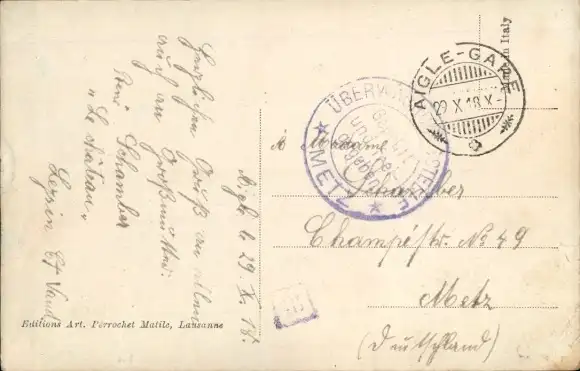 Aigle le 29. X. 18.
Herzlichen Gruß an Alle
auch an Großmutter.
René Schamber
"Le château"
Leysin Ct Vaud
Editions Art. Perrochet Matile, Lausanne
in Italy
AIGLE-GARE
29 X 18 X-
ÜBERWACHUNGSSTELLE
METZ
A Madame
Schamber
Champéstr. No 49
Metz
(Deutschland)